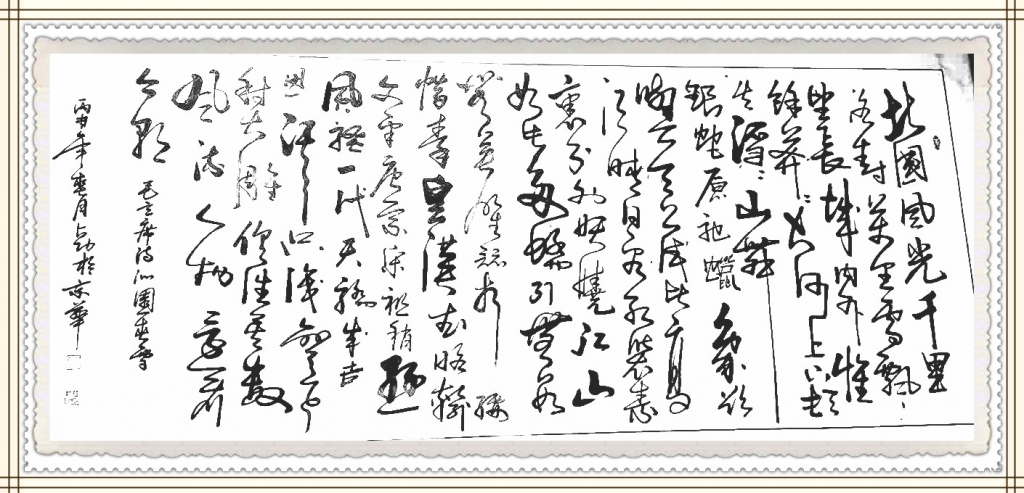 北國風光千里
冰封萬里雪飄
望長城內外惟
餘莽〻大河上下頓
失滔〻山舞
銀蛇原馳蠟象欲
與天公試比高
須晴日看紅裝素
裹分外妖嬈江山
如此多嬌引無數
英雄競折腰
惜秦皇漢武略輸
文采唐宗宋祖稍遜
風騷一代天驕成吉
思汗只識彎弓
射大雕俱往矣數
風流人物還看
今朝
毛主席詩沁園春雪
丙申年春月於京華